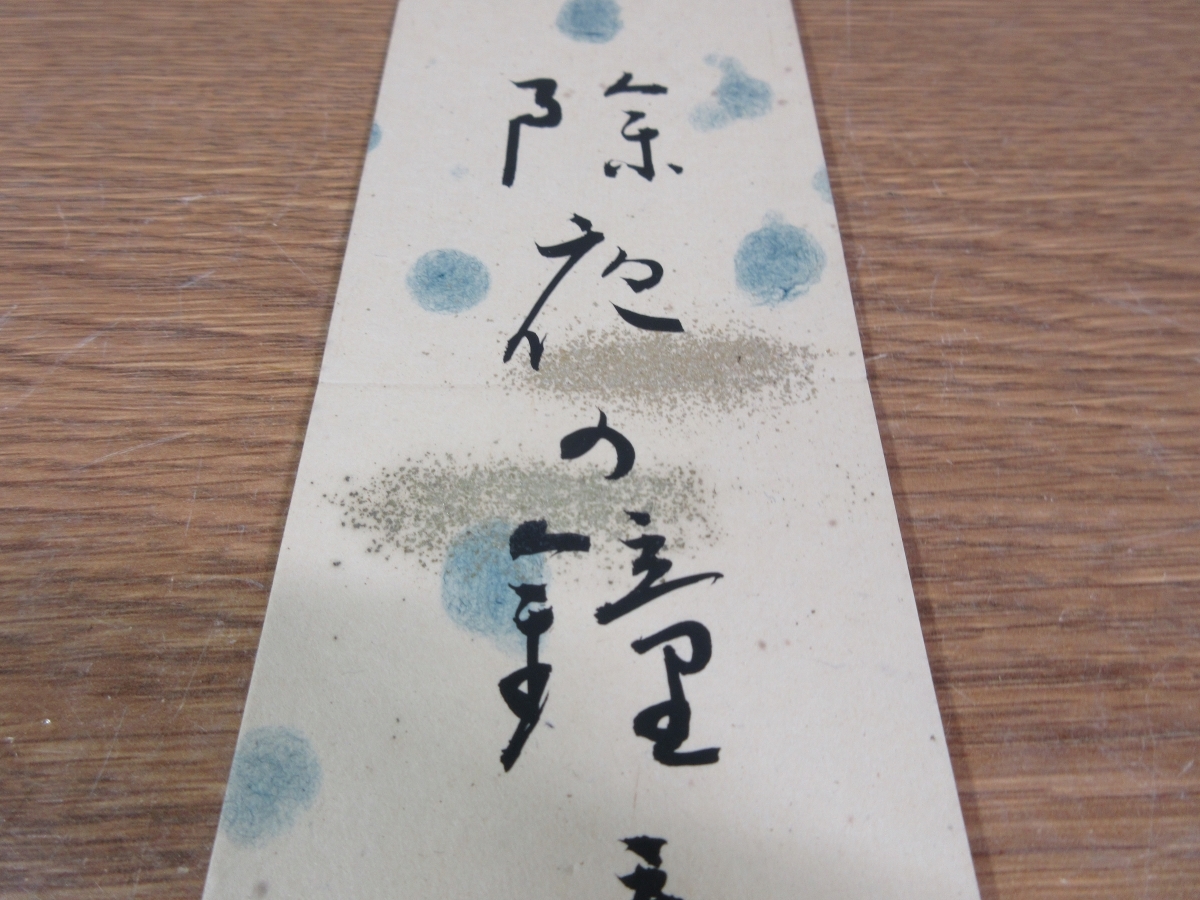 除夜の鐘